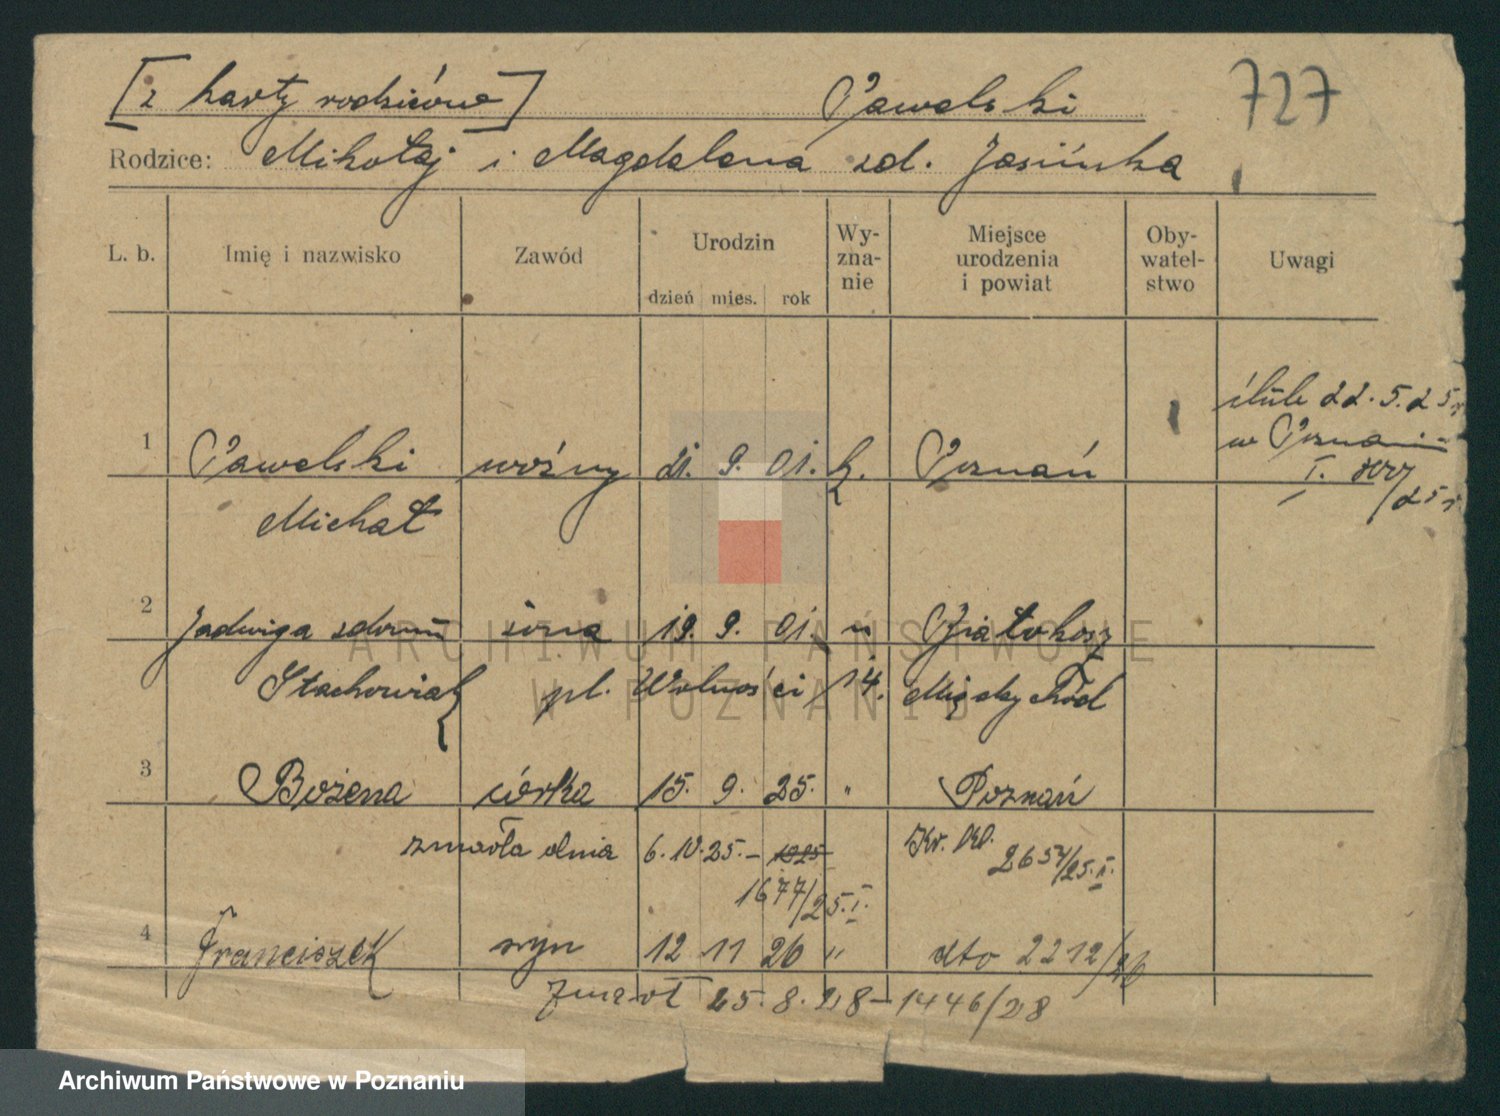 [z karty rodziców] Pawelski 727
Rodzice: Mikołaj i Magdalena zd. Jasińska
L. b. Imię i nazwisko Zawód Urodzin Wy-zna-nie Miejsce urodzenia i powiat Oby-watel-stwo Uwagi
dzień mies. rok
ślub 22.5.25 r
w Poznaniu
1 Pawelski woźny 21. 9. 01. k. Poznań
I.
/25 r
Michał
2 Jadwiga żona 19. 9. 01. " Białokosz
Stachowiak pl. Wolności 14. Międzychód
3 Bożena córka 15. 9. 25. " Poznań
zmarła dnia 6.10.25.- 1925
1677/25.I.
4 Franciszek syn 12 11 26 " dto 2212/26
Zmarł 25.8.28 - 1446/28
ARCHIWUM PAŃSTWOWE
W POZNANIU
Archiwum Państwowe w Poznaniu